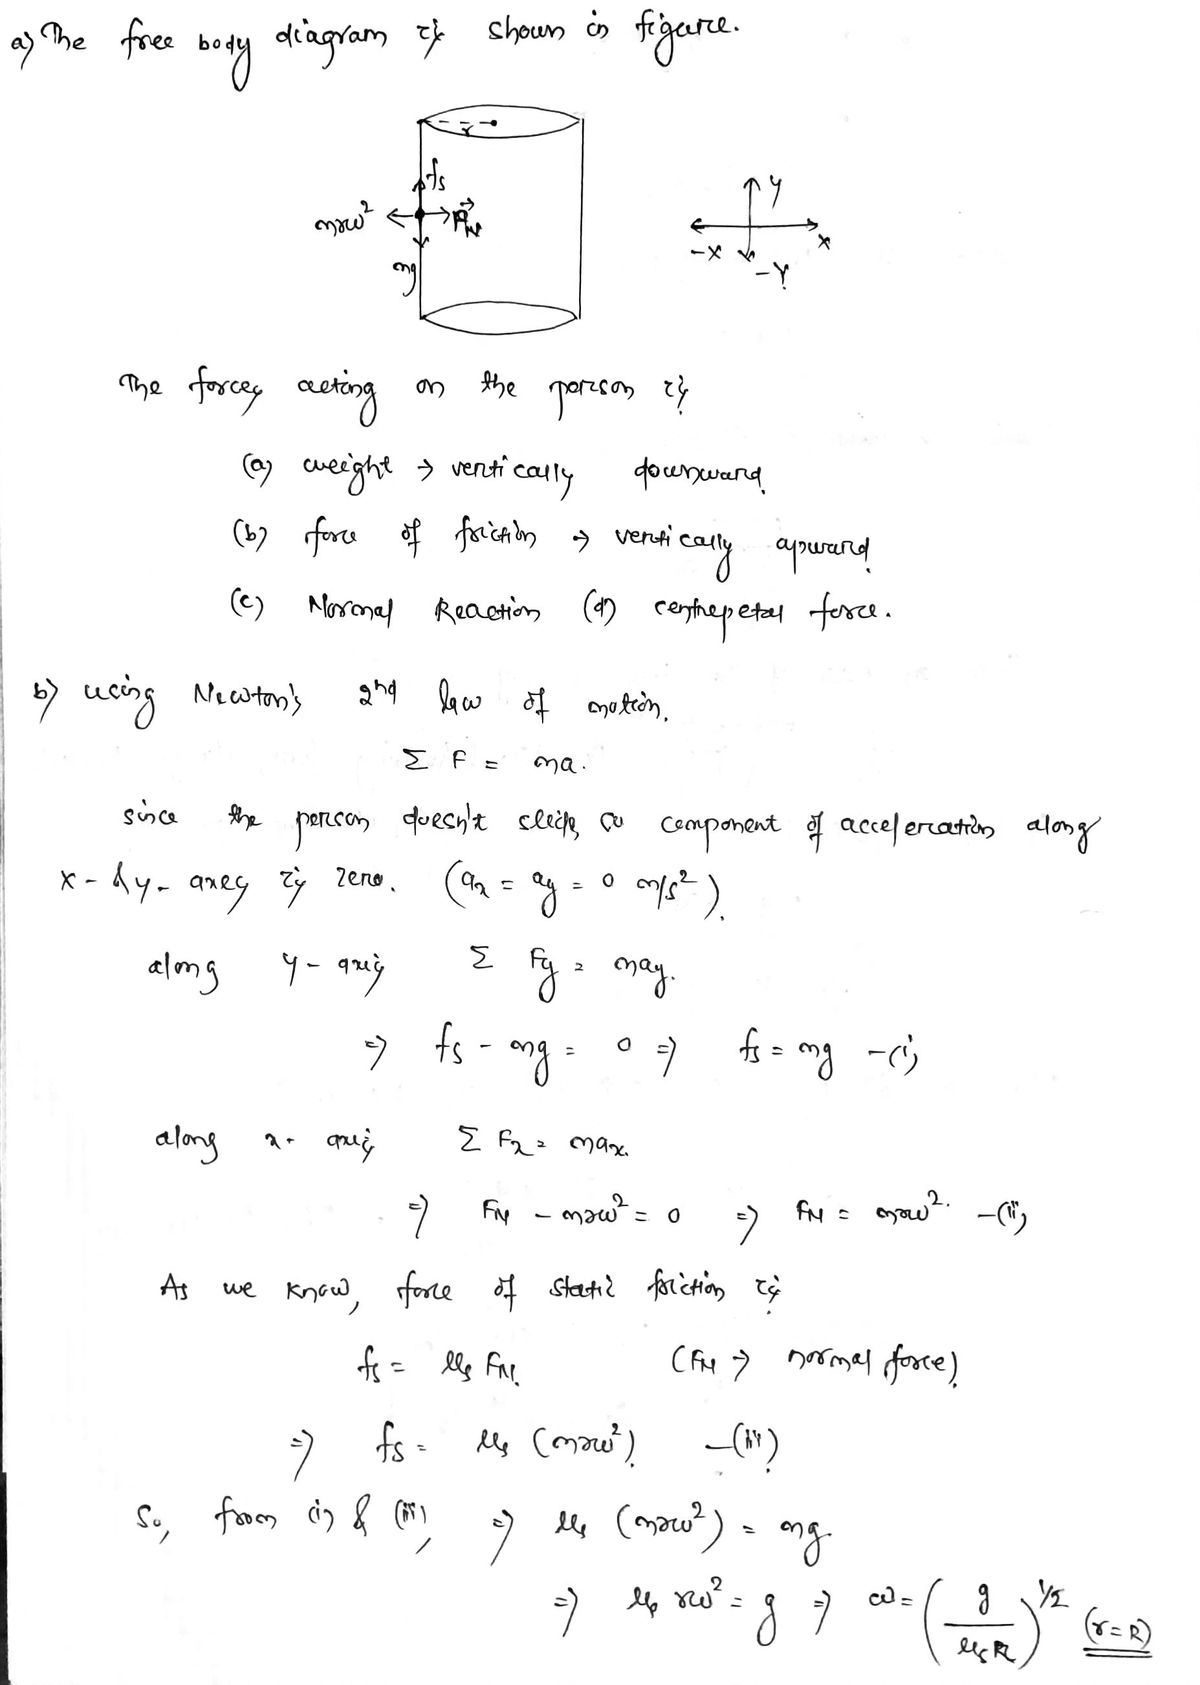 a) The free body diagram is shown in figure.
r
fs
mrω² F_N
mg
y
-x x
-y
The forces acting on the person is
(a) weight → vertically downward.
(b) force of friction → vertically upward.
(c) Normal Reaction (d) centripetal force.
b) using Newton's 2nd law of motion.
Σ F = ma.
since the person doesn't slide, so component of acceleration along
x- & y- axes is zero. (ax = ay = 0 m/s²).
along y-axis Σ Fy = may.
⇒ fs - mg = 0 ⇒ fs = mg -(i)
along x- axis Σ Fx = max.
⇒ F_N - mrω² = 0 ⇒ F_N = mrω². -(ii)
As we know, force of static friction is
fs = μs F_N. (F_N → normal force)
⇒ fs = μs (mrω²). -(iii)
So, from (i) & (iii), ⇒ μs (mrω²) = mg
⇒ μs rω² = g ⇒ ω = (g/μsR)^1/2 (r=R)